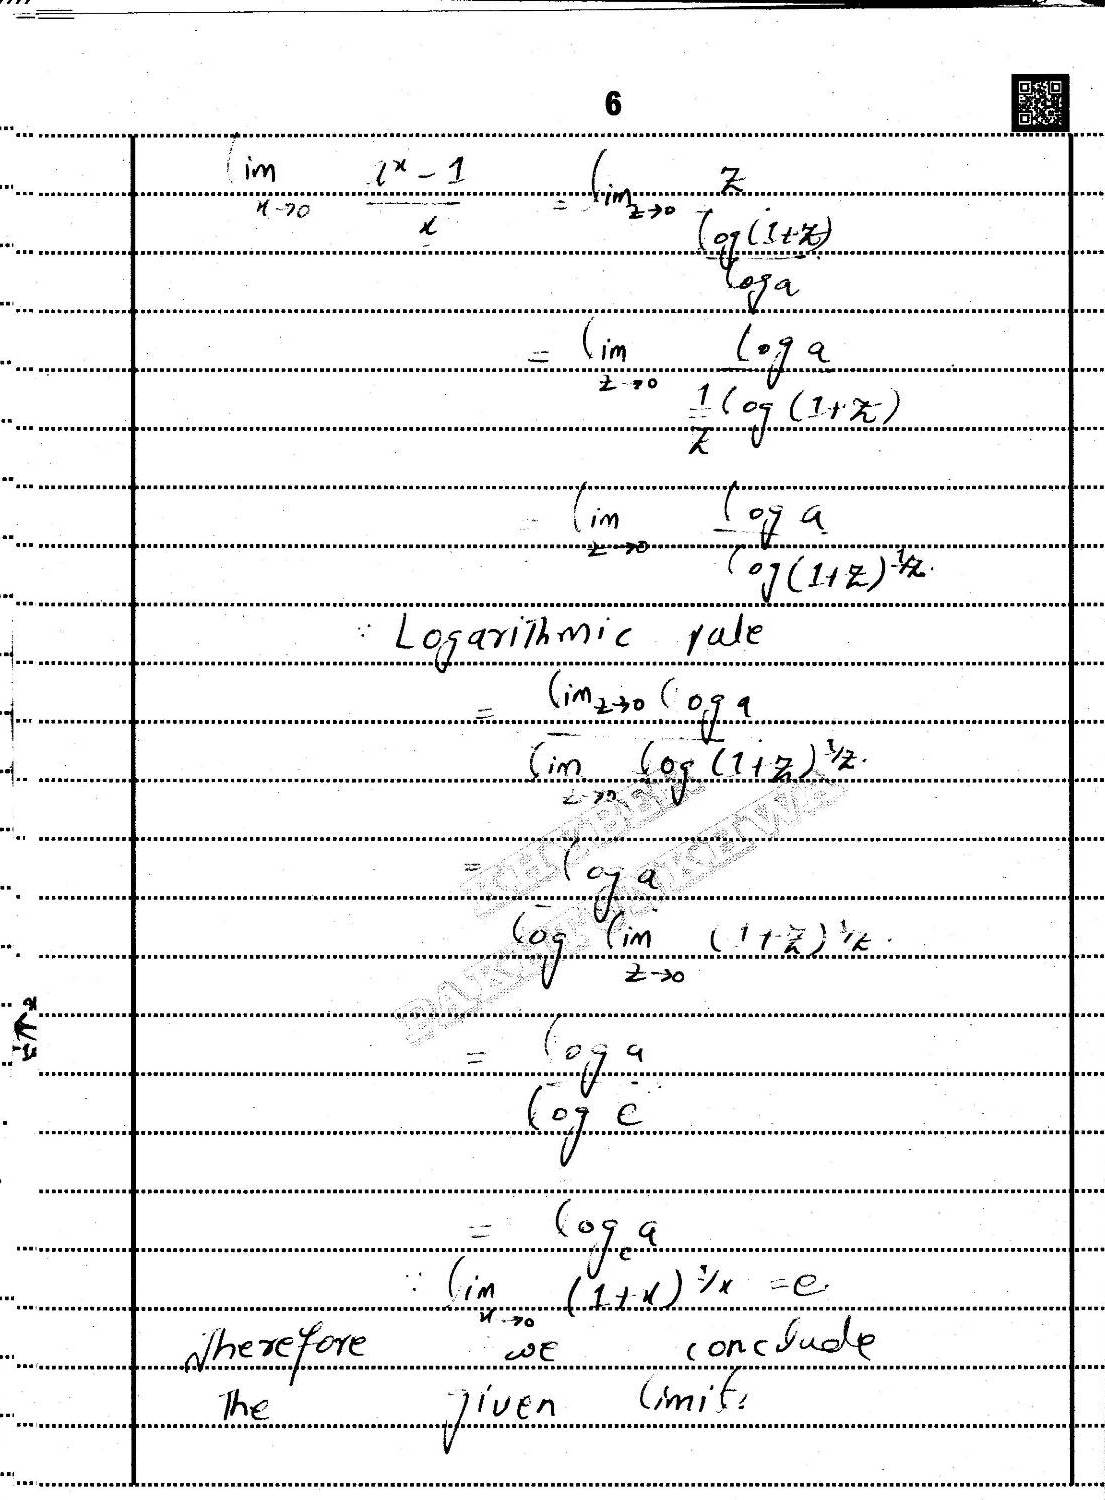 6
lim x→0 (l^x - 1)/x = lim z→0 z/(log(1+z)/log a)
= lim z→0 log a/((1/z) log(1+z))
= lim z→0 log a/log(1+z)^1/z.
∵ Logarithmic rule
= lim z→0 log a/lim z→0 log(1+z)^1/z.
= log a/log lim z→0 (1+z)^1/z.
= log a/log e
= log_e a
∵ lim x→0 (1+x)^1/x = e.
Therefore we conclude
The given limit.
KHYBER
PAKHTUNKHWA